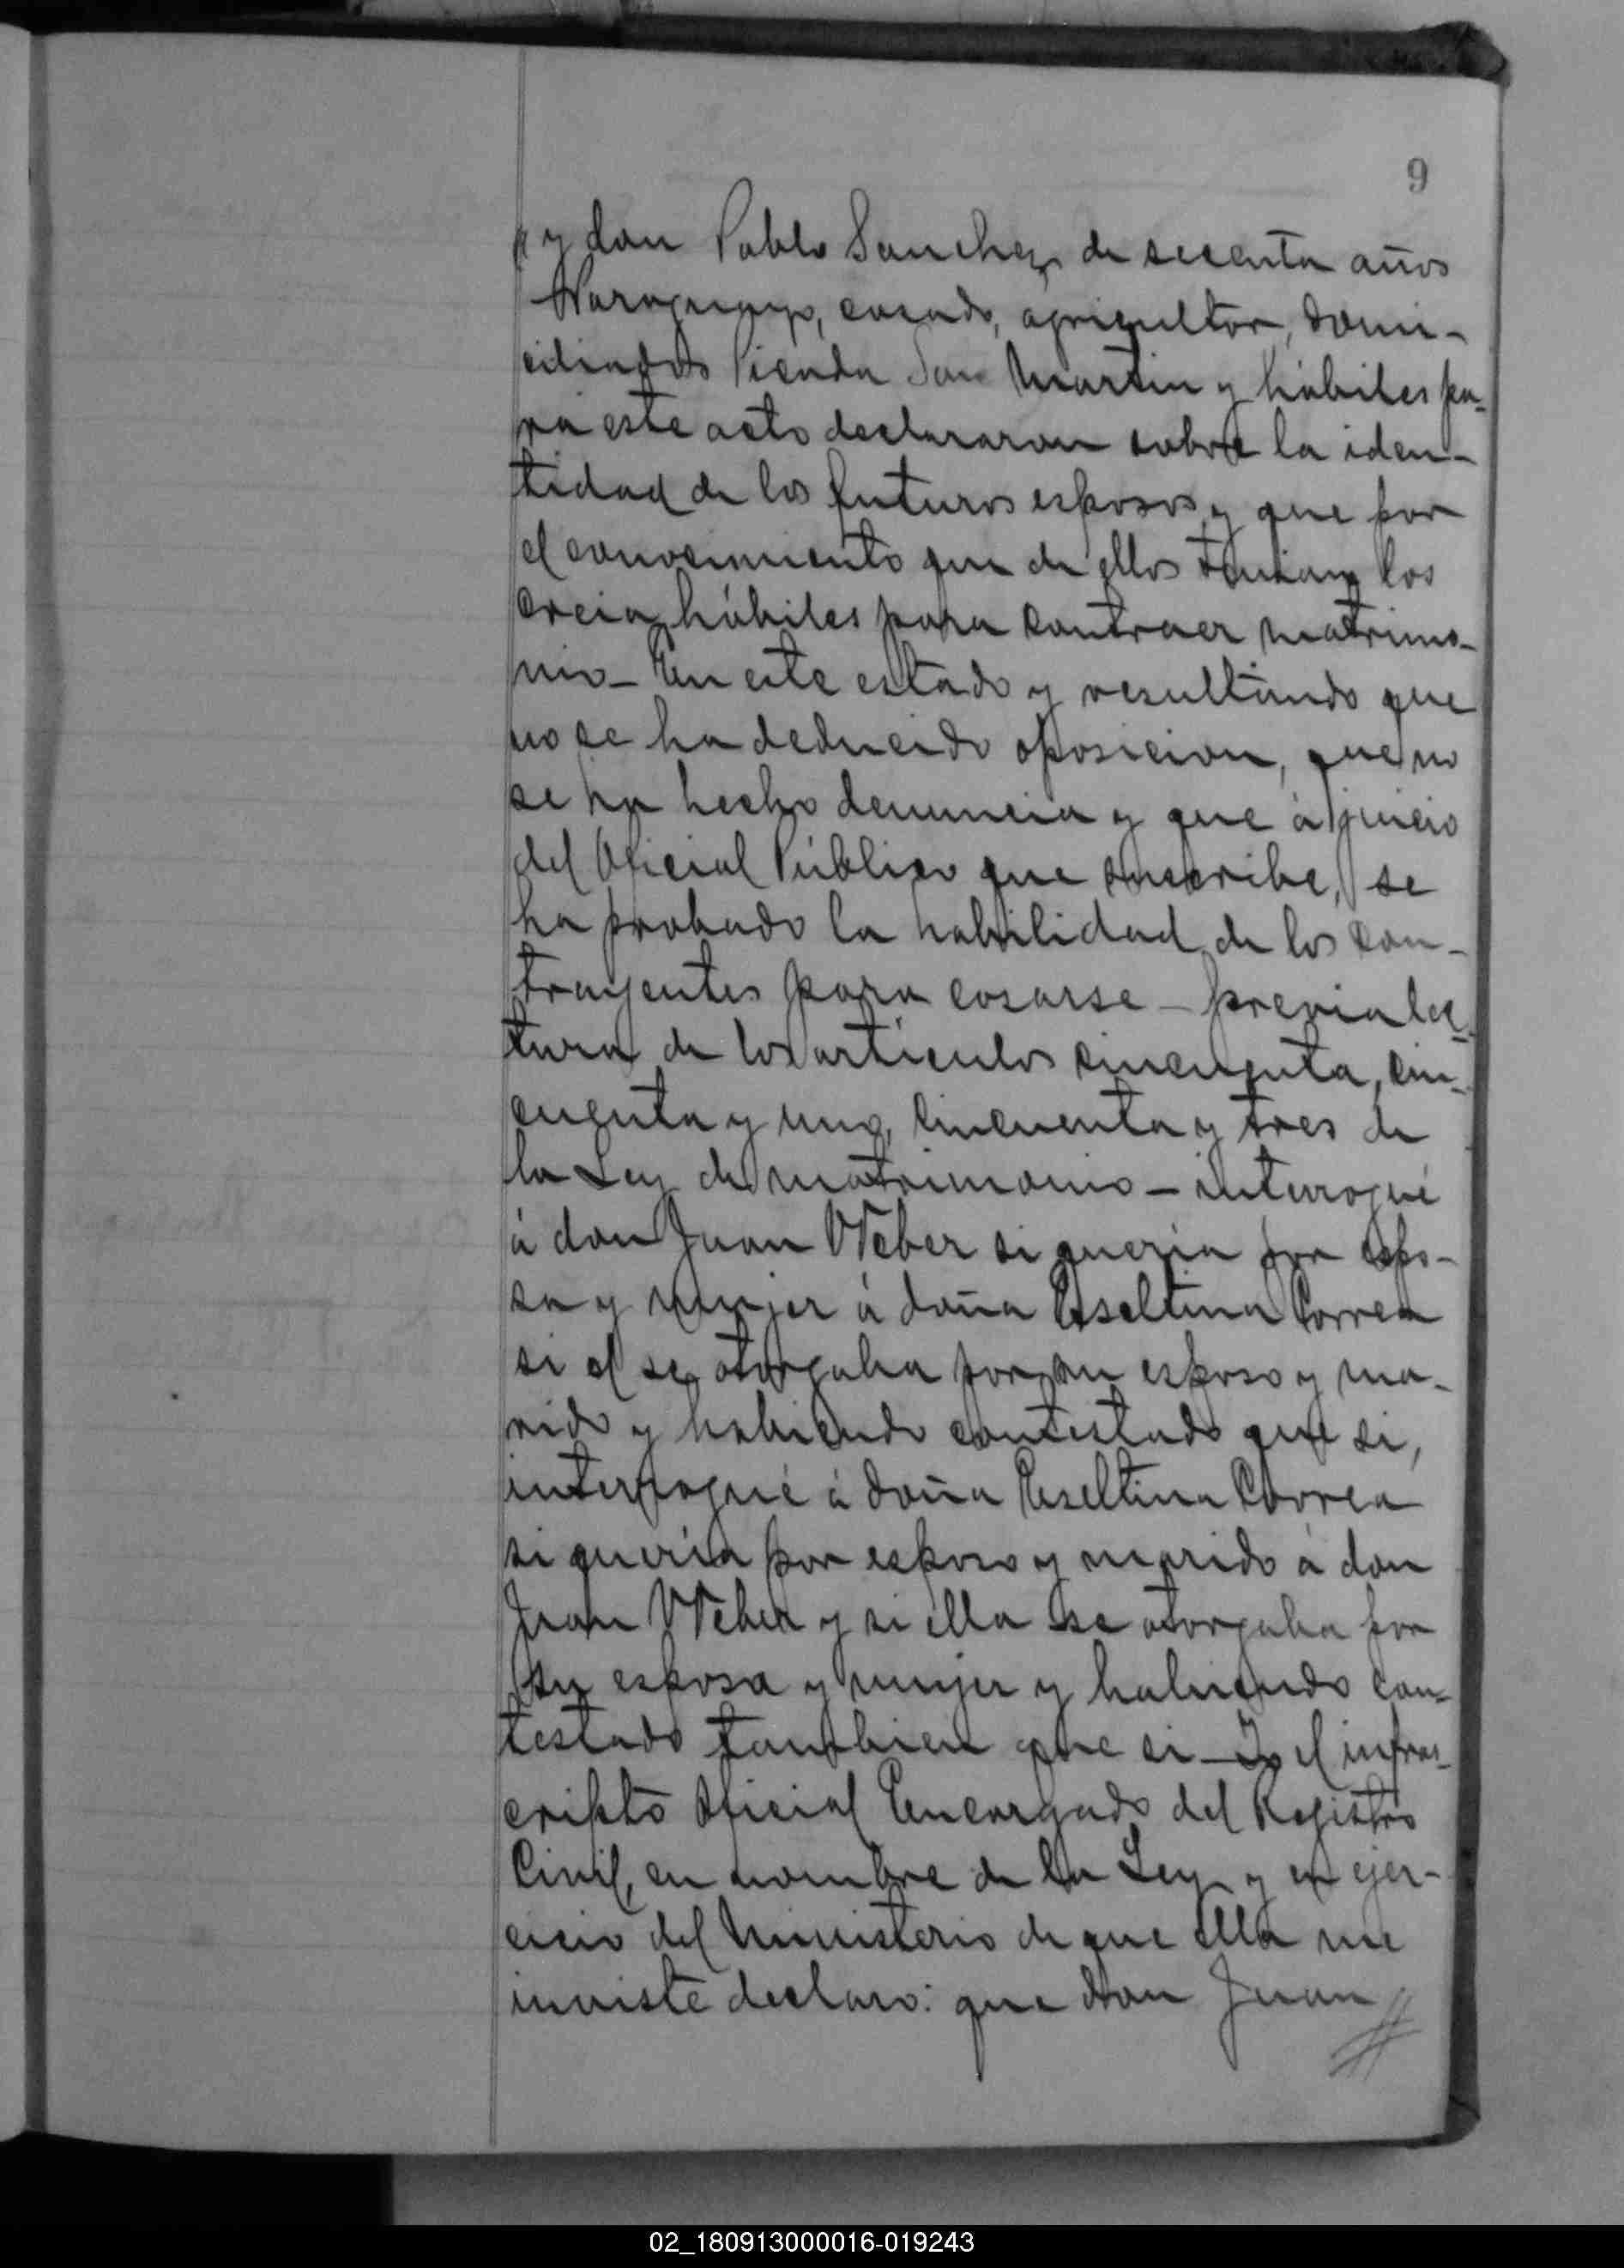 9
" y don Pablo Sanchez de secenta años
Paraguayo, casado, agricultor, domi-
ciliados Picada San Martin y hábiles pa-
ra este acto declararon sobre la iden-
tidad de los futuros esposos, y que por
el conocimiento que de ellos tenian los
creian hábiles para contraer matrimo-
nio_ En este estado y resultando que
no se ha deducido oposicion, que no
se ha hecho denuncia y que á juicio
del Oficial Público que suscribe, se
ha probado la habilidad de los con-
trayentes para casarse_ previa lec-
tura de los artículos cincuenta, cin-
cuenta y uno, cincuenta y tres de
la Ley de matrimonio_ interrogué
á don Juan Weber si queria por espo-
sa y mujer á doña Eseltina Correa
si el se otorgaba por su esposo y ma-
rido y habiendo contestado que si,
interrogué á doña Eseltina Correa
si queria por esposo y marido á don
Juan Weber y si ella se otorgaba por
su esposa y mujer y habiendo con-
testado tambien que si_ Yo el infras-
cripto Oficial Encargado del Registro
Civil, en nombre de la Ley y en ejer-
cicio del Ministerio de que ella me
inviste declaro: que don Juan //
02_180913000016-019243